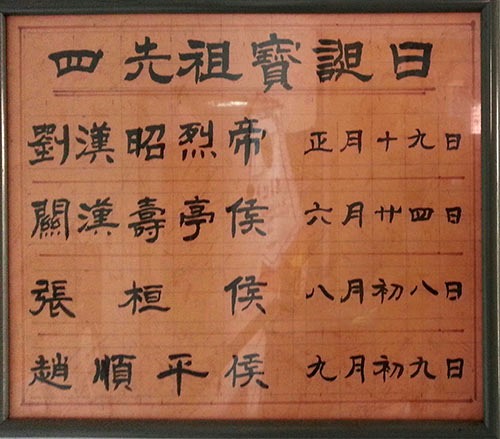 四先祖寶誕日
劉漢昭烈帝 正月十九日
關漢壽亭侯 六月廿四日
張桓侯 八月初八日
趙順平侯 九月初九日